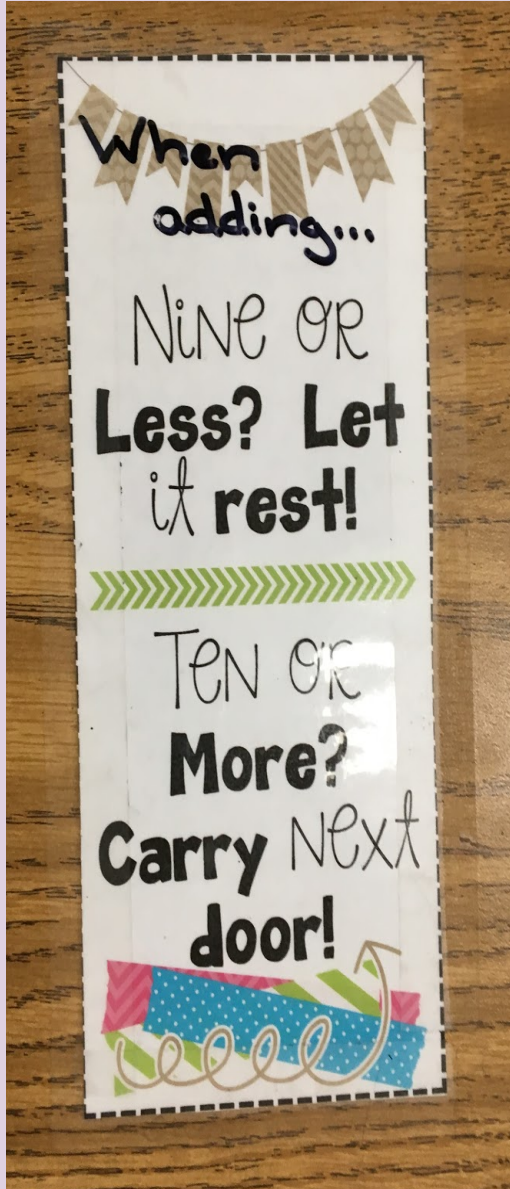 When
adding...
Nine or
Less? Let
it rest!
Ten or
More?
Carry Next
door!